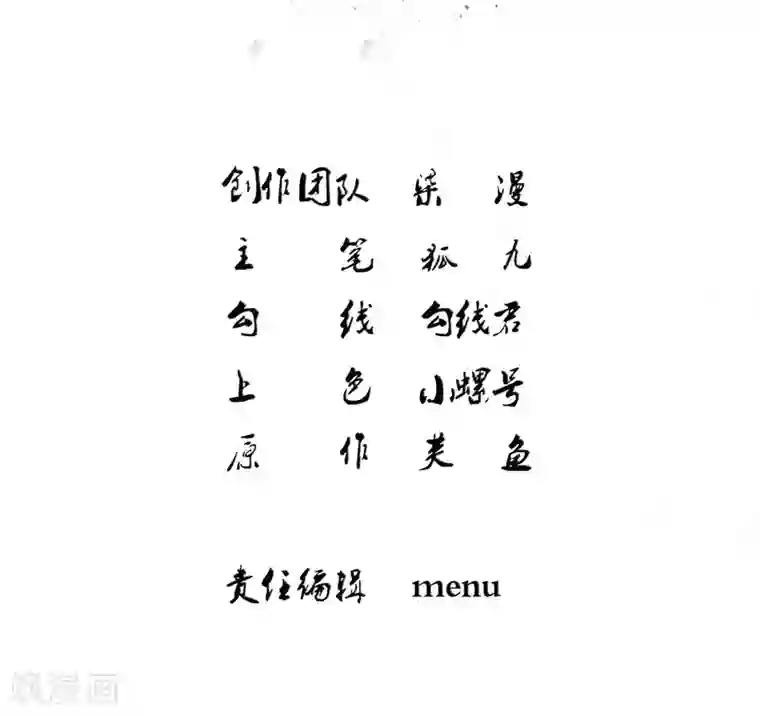 创作团队 柒漫
主笔 狐九
勾线 勾线君
上色 小螺号
原作 芙鱼
责任编辑 menu
漫画